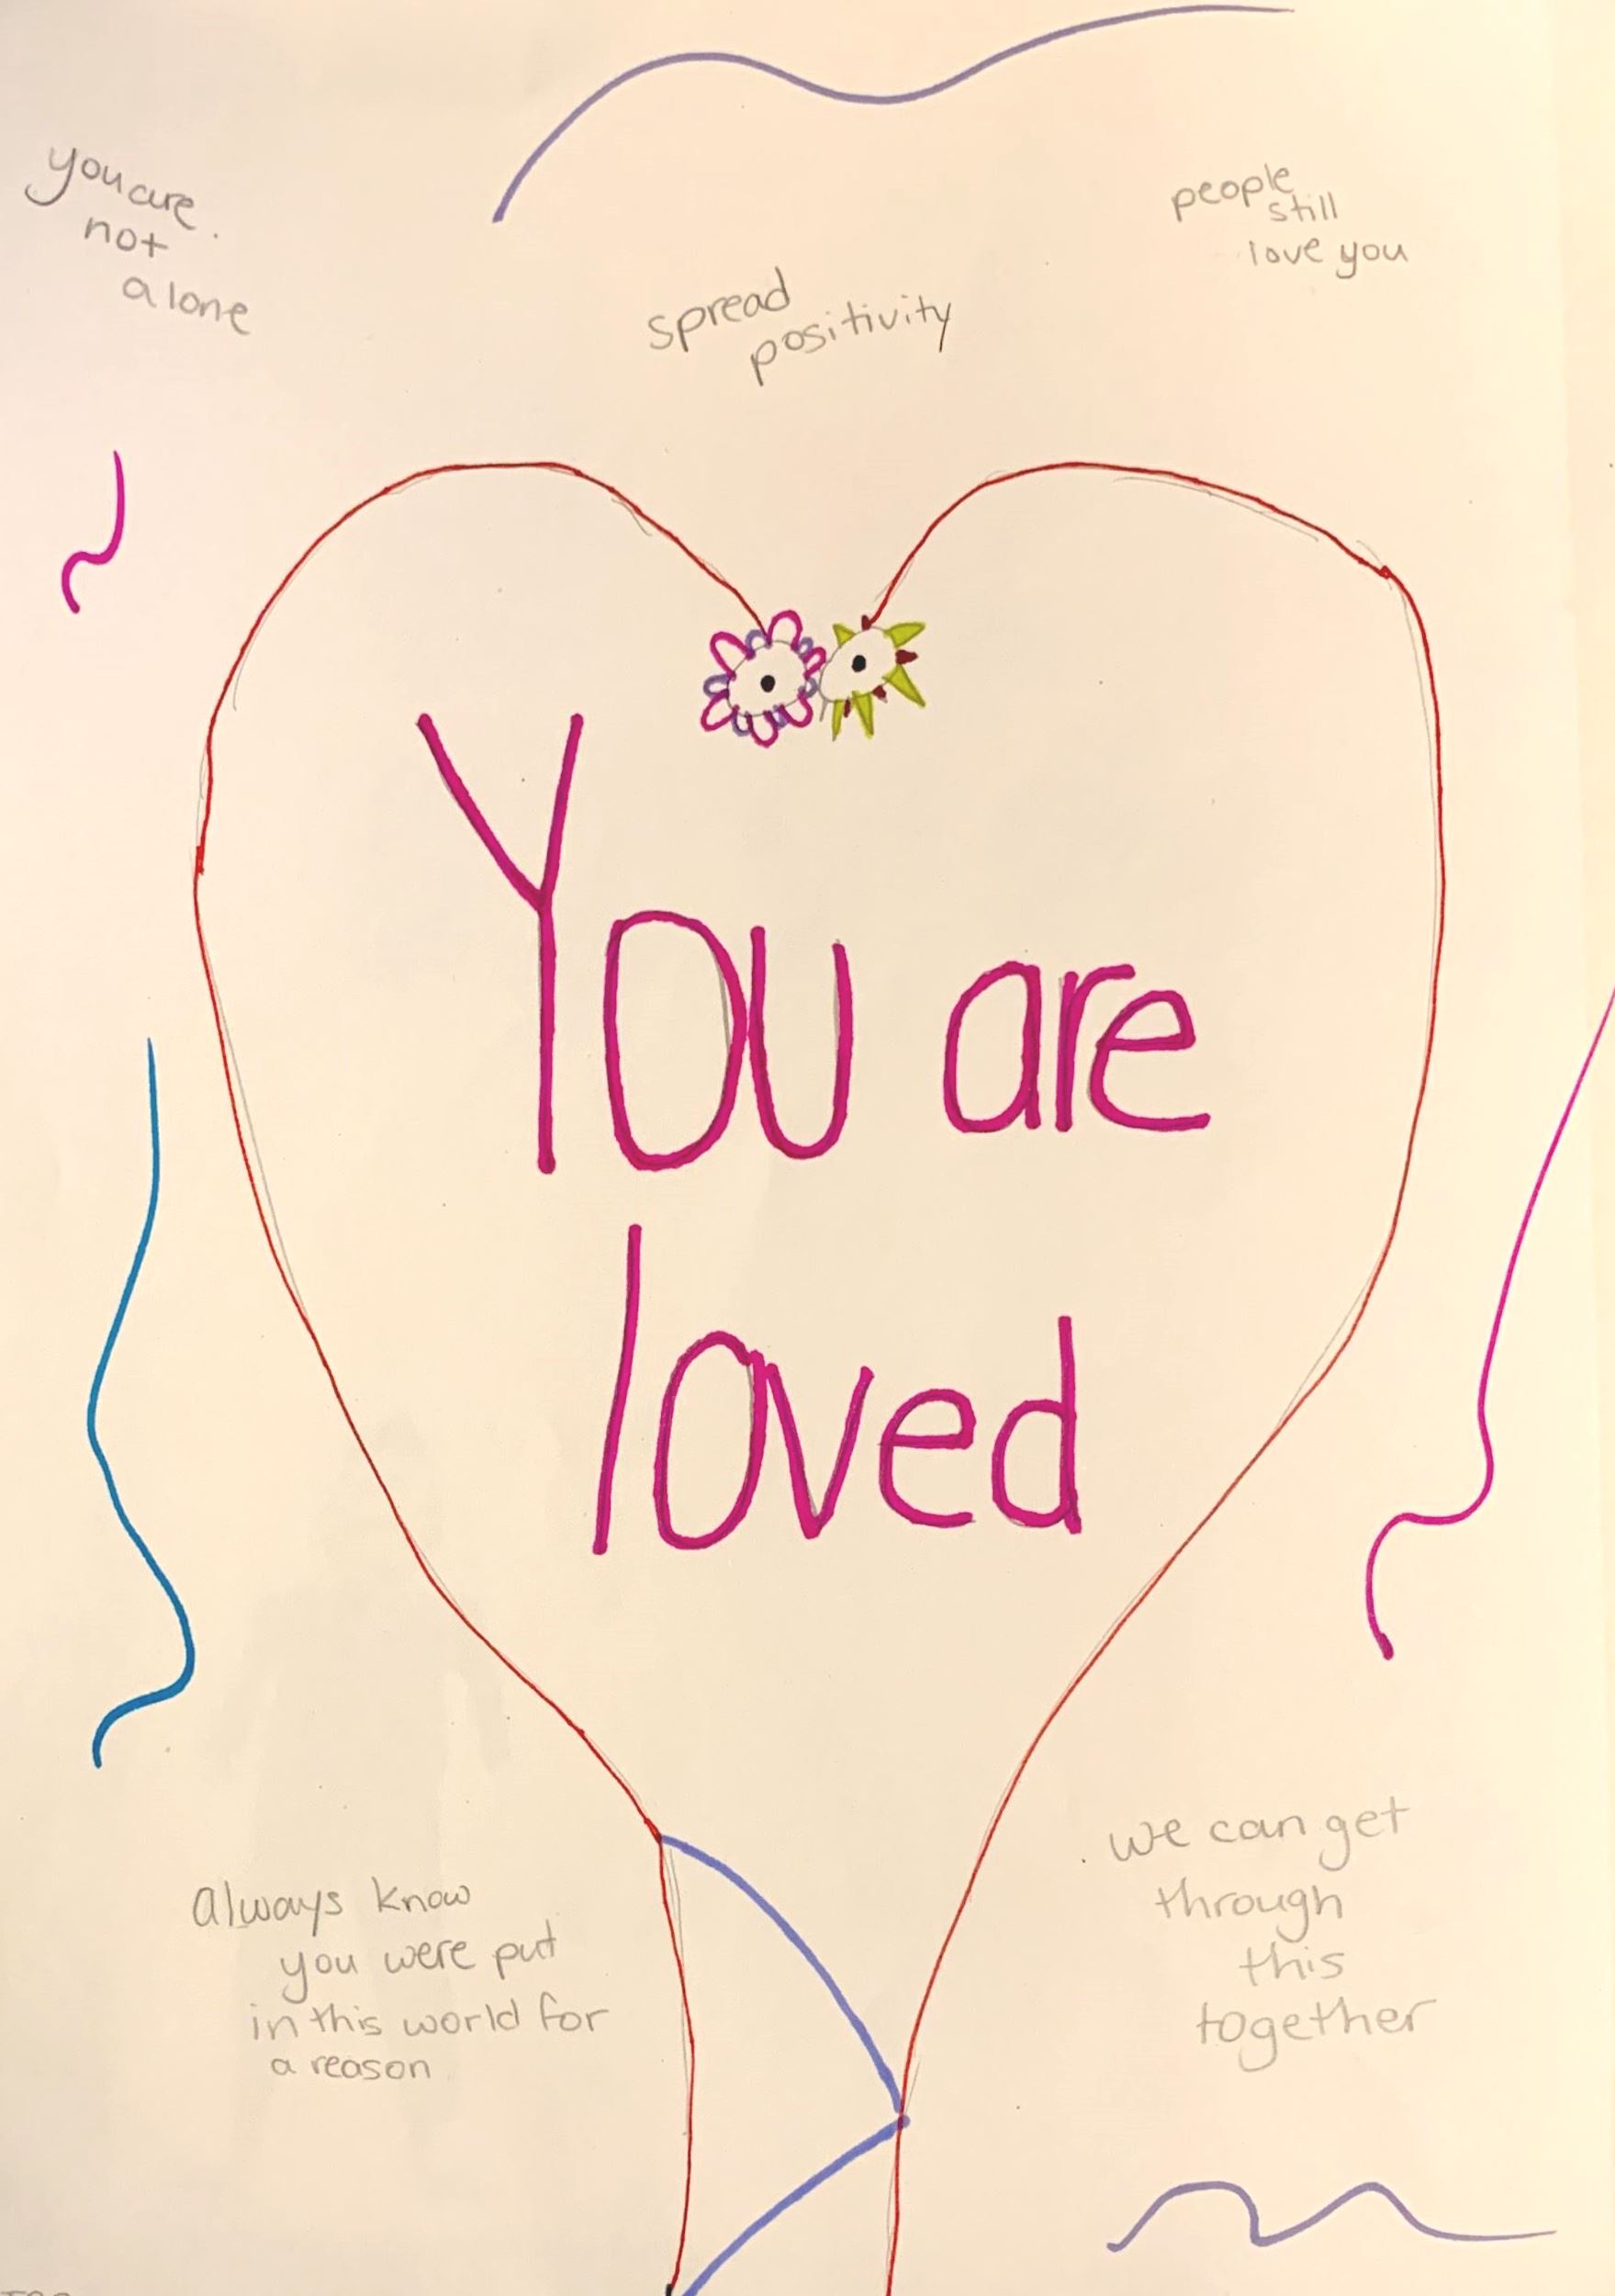 you are
not
alone
people
still
love you
spread
positivity
You are
loved
always know
you were put
in this world for
a reason
we can get
through
this
together